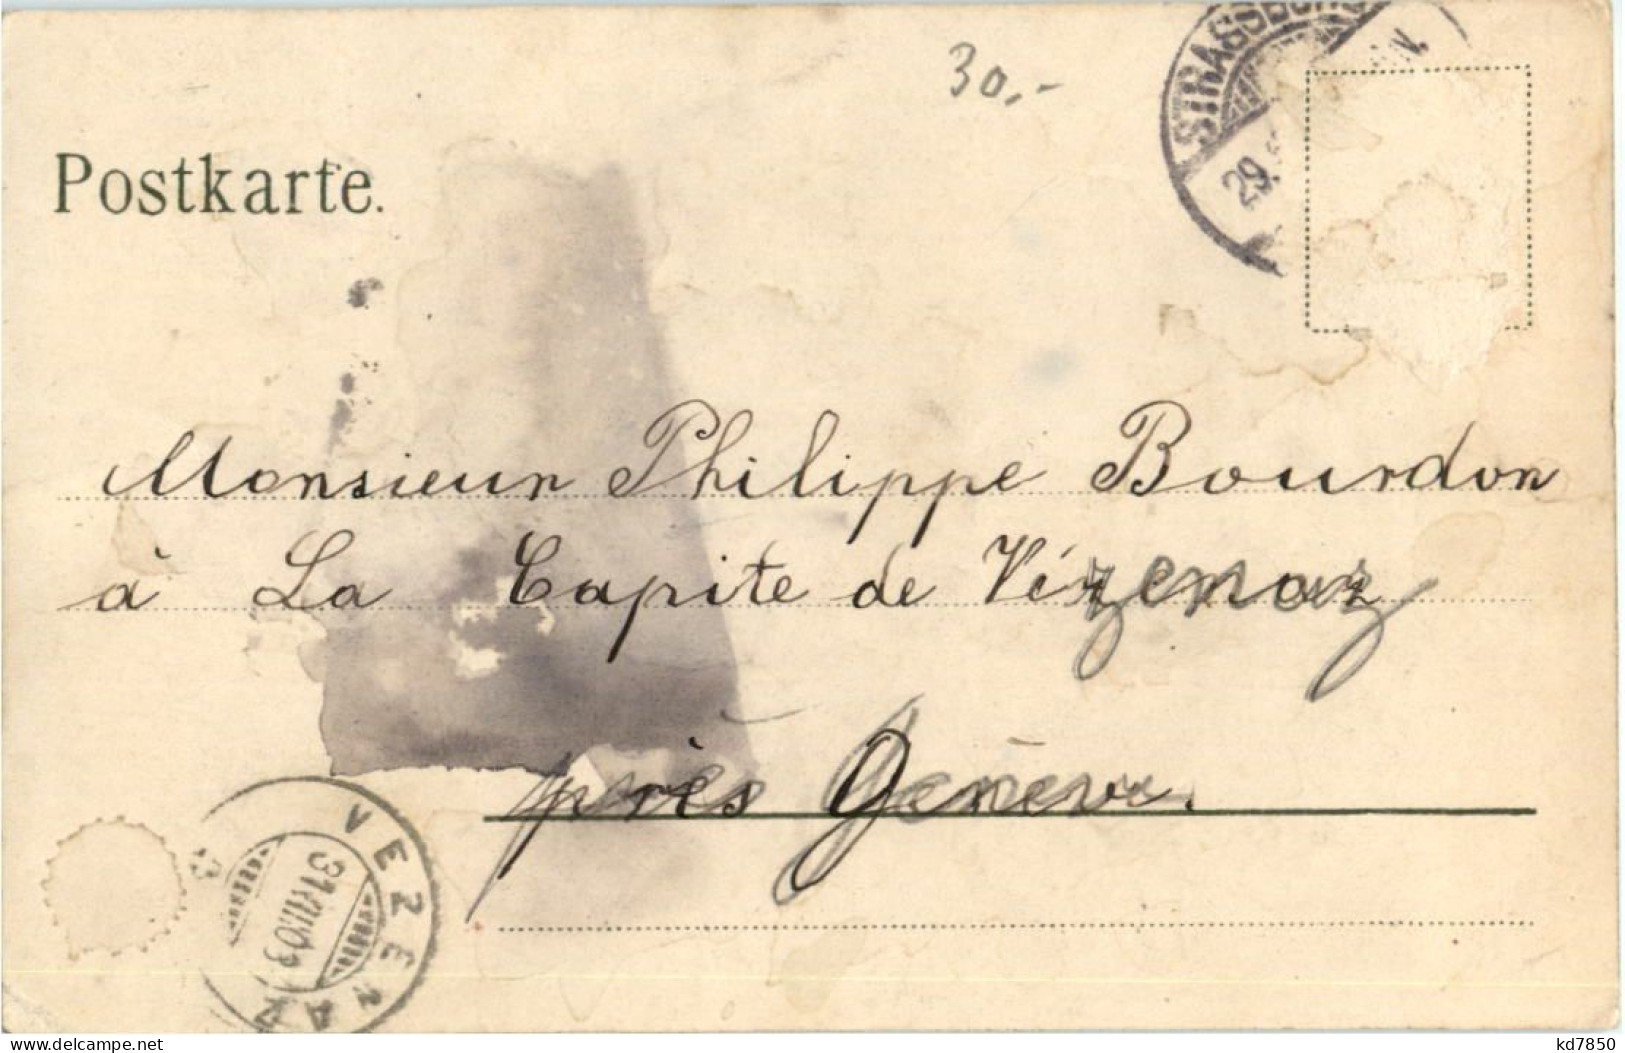 30.-
STRASSBURG
29.
Postkarte.
Monsieur Philippe Bourdon
à La Capite de Vézenaz
près Genève.
VEZENAZ
31.VIII.03
delcampe.net
kd7850